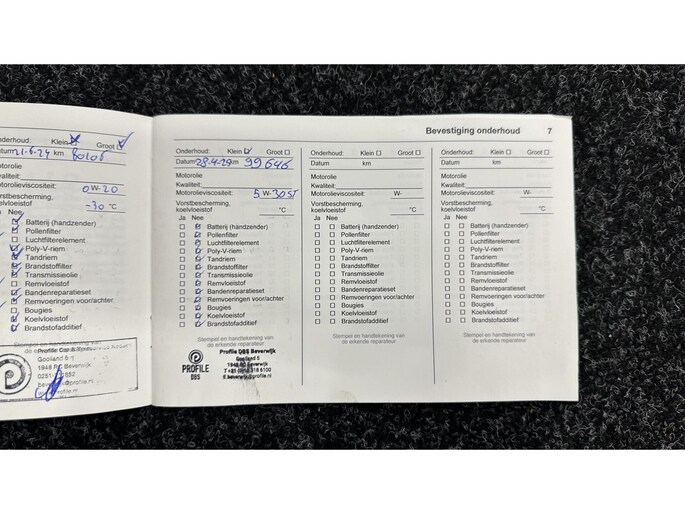 Bevestiging onderhoud 7
Onderhoud: Klein Groot
21-6-24 km
Motorolie
Kwaliteit:
Motorolieviscositeit: 0 W-20
Vorstbescherming,
koelvloeistof -30 °C
Ja Nee
Batterij (handzender)
Pollenfilter
Luchtfilterelement
Poly-V-riem
Tandriem
Brandstoffilter
Transmissieolie
Remvloeistof
Bandenreparatieset
Remvoeringen voor/achter
Bougies
Koelvloeistof
Brandstofadditief
Profile Car &
Gooiland 5
1948 RC Beverwijk
Onderhoud: Klein Groot
Datum km 99646
Motorolie
Kwaliteit:
Motorolieviscositeit: 5 W-30 ST
Vorstbescherming,
koelvloeistof °C
Ja Nee
Batterij (handzender)
Pollenfilter
Luchtfilterelement
Poly-V-riem
Tandriem
Brandstoffilter
Transmissieolie
Remvloeistof
Bandenreparatieset
Remvoeringen voor/achter
Bougies
Koelvloeistof
Brandstofadditief
Stempel en handtekening van
de erkende reparateur
PROFILE
DBS
Profile DBS Beverwijk
Gooiland 5
1948 RC Beverwijk
Onderhoud: Klein Groot
Datum km
Motorolie
Kwaliteit:
Motorolieviscositeit: W-
Vorstbescherming,
koelvloeistof °C
Ja Nee
Batterij (handzender)
Pollenfilter
Luchtfilterelement
Poly-V-riem
Tandriem
Brandstoffilter
Transmissieolie
Remvloeistof
Bandenreparatieset
Remvoeringen voor/achter
Bougies
Koelvloeistof
Brandstofadditief
Stempel en handtekening van
de erkende reparateur
Onderhoud: Klein Groot
Datum km
Motorolie
Kwaliteit:
Motorolieviscositeit: W-
Vorstbescherming,
koelvloeistof °C
Ja Nee
Batterij (handzender)
Pollenfilter
Luchtfilterelement
Poly-V-riem
Tandriem
Brandstoffilter
Transmissieolie
Remvloeistof
Bandenreparatieset
Remvoeringen voor/achter
Bougies
Koelvloeistof
Brandstofadditief
Stempel en handtekening van
de erkende reparateur